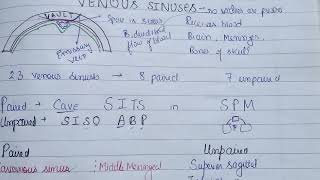 VENOUS SINUSES - no valves
VAULT
Space is sinus
Receives blood
B. direction
flow of blood
Brain, Meninges,
Bones of skull
Emissary
vein
23 venous sinuses → 8 paired 7 unpaired
Paired → Cave SITS in SPM
Unpaired → SISO ABP
Paired Unpaired
Cavernous sinus : Middle Meningeal Superior sagittal